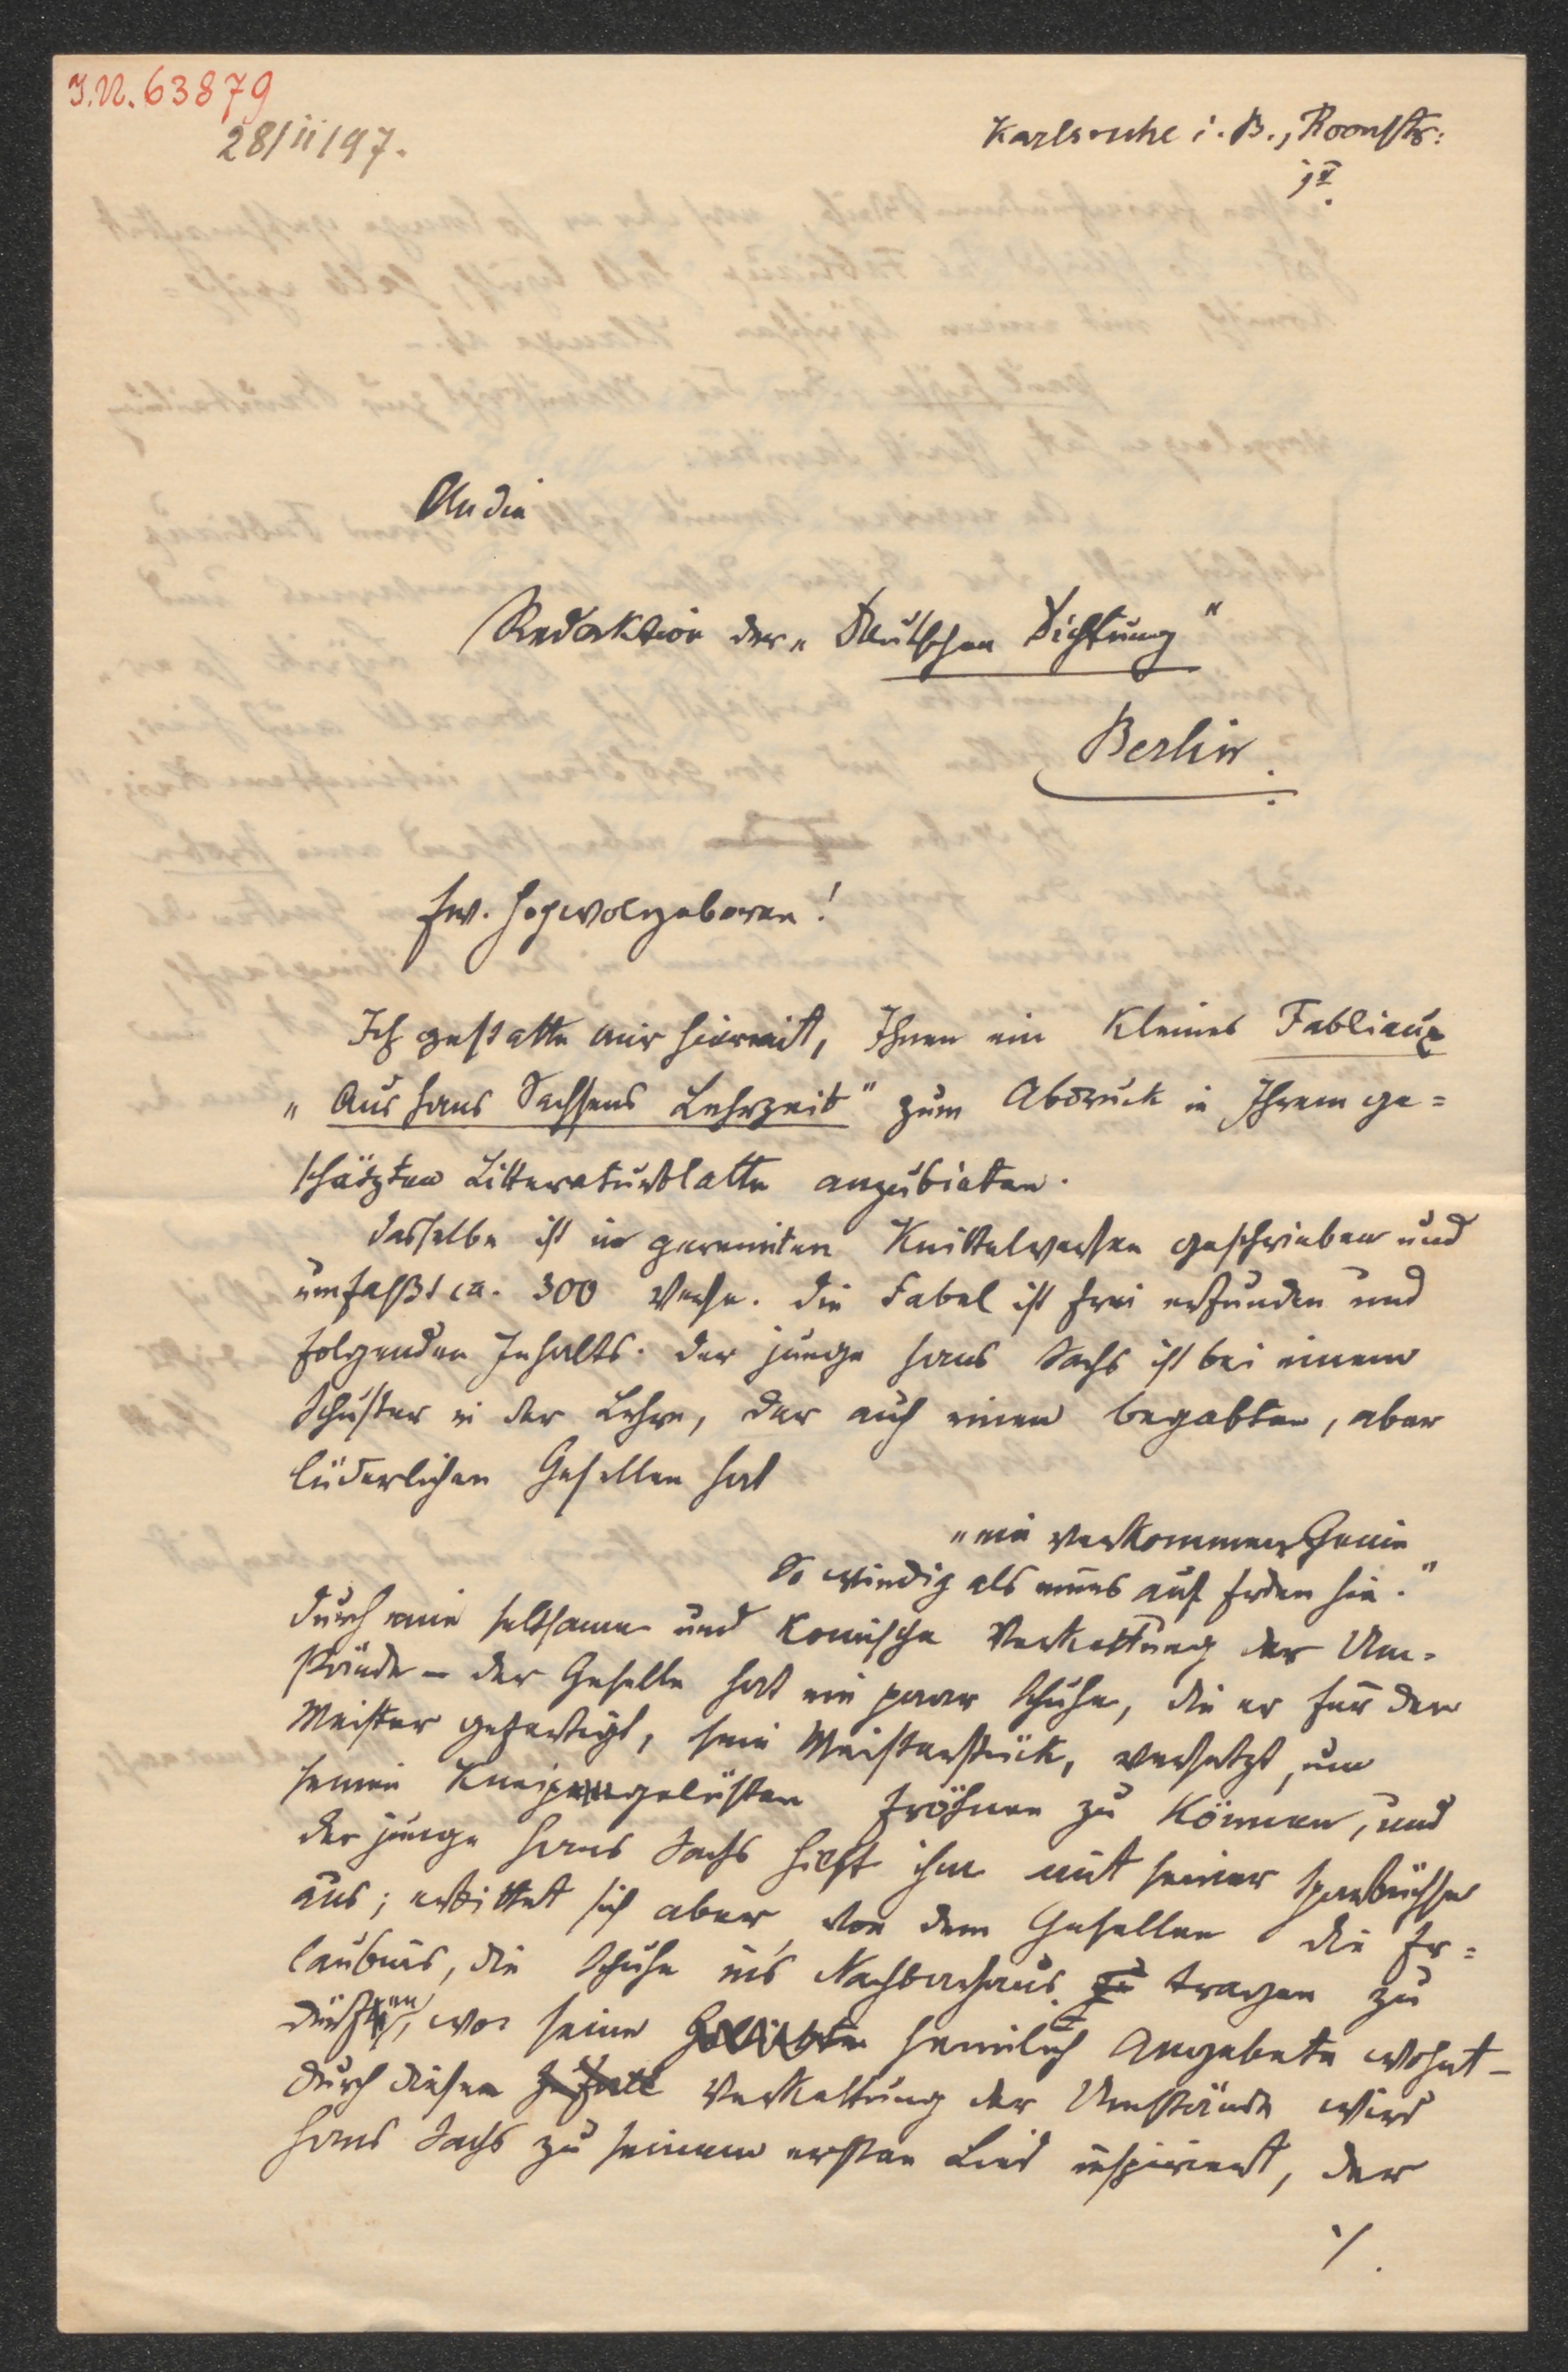 I.N. 63879
28/II/97.
Karlsruhe i. B., Roonstr:
An die
Redaktion der „Deutschen Dichtung"
Berlin.
Ew. Hochwolgeboren!
Ich gestatte mir hiermit, Ihnen ein kleines Fabliaux
„Aus Hans Sachsens Lehrzeit" zum Abdruck in Ihrem ge=
schätzten Litteraturblatte anzubieten.
Dasselbe ist in gereimten Knittelversen geschrieben und
umfaßt ca. 300 Verse. Die Fabel ist frei erfunden und
folgenden Inhalts. Der junge Hans Sachs ist bei einem
Schuster in der Lehre, der auch einen begabten, aber
lüderlichen Gesellen hat
„ein verkommen Genie
So windig als eines auf Erden hie."
Durch eine seltsame und komische Verkettung der Um=
stände – der Geselle hat ein paar Schuhe, die er für den
Meister gefertigt, sein Meisterstück, versetzt, um
seinen Kneipengelüsten fröhnen zu können, und
der junge Hans Sachs hilft ihm mit seiner Sparbüchse
aus; erbittet sich aber von dem Gesellen die Er=
laubnis, die Schuhe in's Nachbarhaus zu tragen zu
dürfen, wo seine Geliebte heimlich Angebete wohnt –
durch diese Zufall Verkettung der Umstände wird
Hans Sachs zu seinem ersten Lied inspiriert, der
./.